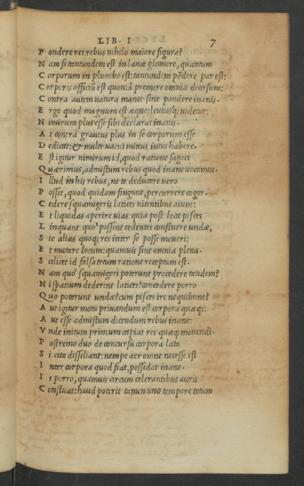 LIB. I 7
P ondere res rebus nihilo maiore figura?
N am si tantundem est in lanæ glomere, quantum
C orporum in plumbo est: tantundem pēdere par est:
C orporis officiū est quoniā premere omnia deorsum:
C ontra autem natura manet sine pondere inanis.
E rgo quod magnum est æque: leuiusq; uidetur:
N imirum plus esse sibi declarat inanis.
A t contra grauius plus in se corporum esse
D edicat: & multo uacui minus intus habere.
E st igitur nimirum id, quod ratione sagaci
Quærimus, admistum rebus quod inane uocamus.
I llud in his rebus, ne te deducere uero
P ossit, quod quidam fingunt, præcurrere cogor.
C edere squamigeris latices nitentibus aiunt:
E t liquidas aperire uias: quia post loca pisces
L inquant: quo possint cedentes confluere undæ,
S ic alias quoq; res inter se posse moueri:
E t mutare locum: quamuis sint omnia plena.
S cilicet id falsa totum ratione receptum est.
N am quo squamigeri poterunt procedere tandem?
N i spatium dederint latices? concedere porro
Quo poterunt undæ? cum pisces ire nequibunt?
A ut igitur motu priuandum est corpora quæq;:
A ut esse admistum dicendum rebus inane:
V nde initum primum capiat res quæq; mouendi.
P ostremo duo de concursu corpora lata
S i cita dissiliant: nempe aer omne necesse est
I nter corpora quod fiat, possidat inane.
I s porro, quamuis circum celerantibus auris
C onfluat: haud poterit tamen uno tempore totum